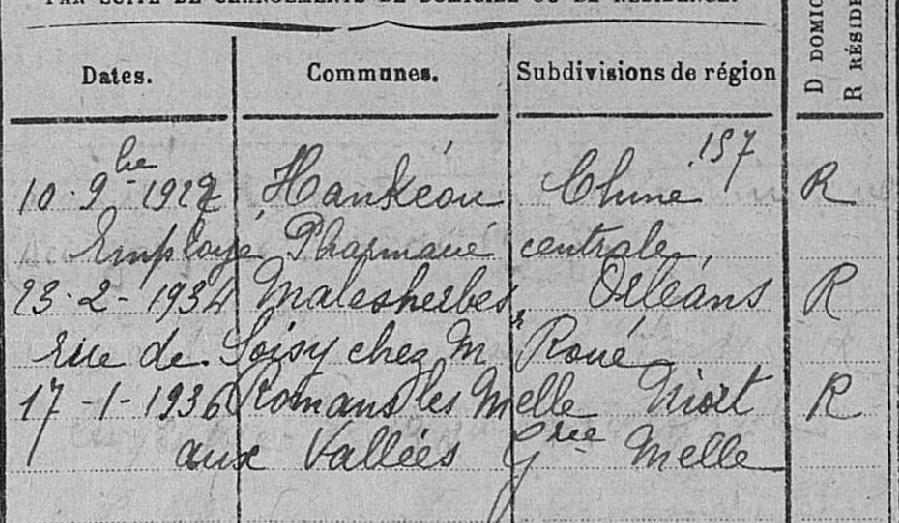 PAR SUITE DE CHANGEMENTS DE DOMICILE OU DE RÉSIDENCE.
Dates. Communes. Subdivisions de région D DOMIC R RÉSIDE
10. 9bre 1912 Hankéou Chine 157 R
Employé Pharmacie centrale
23-2-1934 Malesherbes, Orléans R
rue de Soisy chez Mr Roué
17-1-1936 Romans les Melle Niort R
aux Vallées Gnee Melle